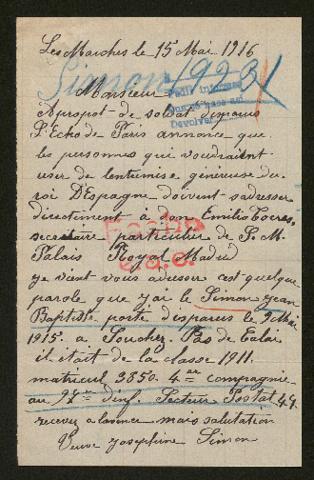 Les Marches le 15 Mai 1916
Simon 1923
Monsieur
Apropot de soldat disparus
L'Echo de Paris annonce que
les personnes qui voudraient
user de lentremise généreuse du
roi D'Espagne doivent sadresser
directement à don Emilio Torres
secretaire particulier de S. M
Palais Royal Madrid
je vient vous adresser cest quelque
parole que j'ai le Simon jean
Baptiste porté disparus le 9 Mai
1915. a Souchez Pas de Calai
il était de la classe 1911.
matricul 3350. 4me compagnie
au 97me d'inf. Secteur Postal 49.
recevez a lavance mais salutation
Veuve Josephine Simon